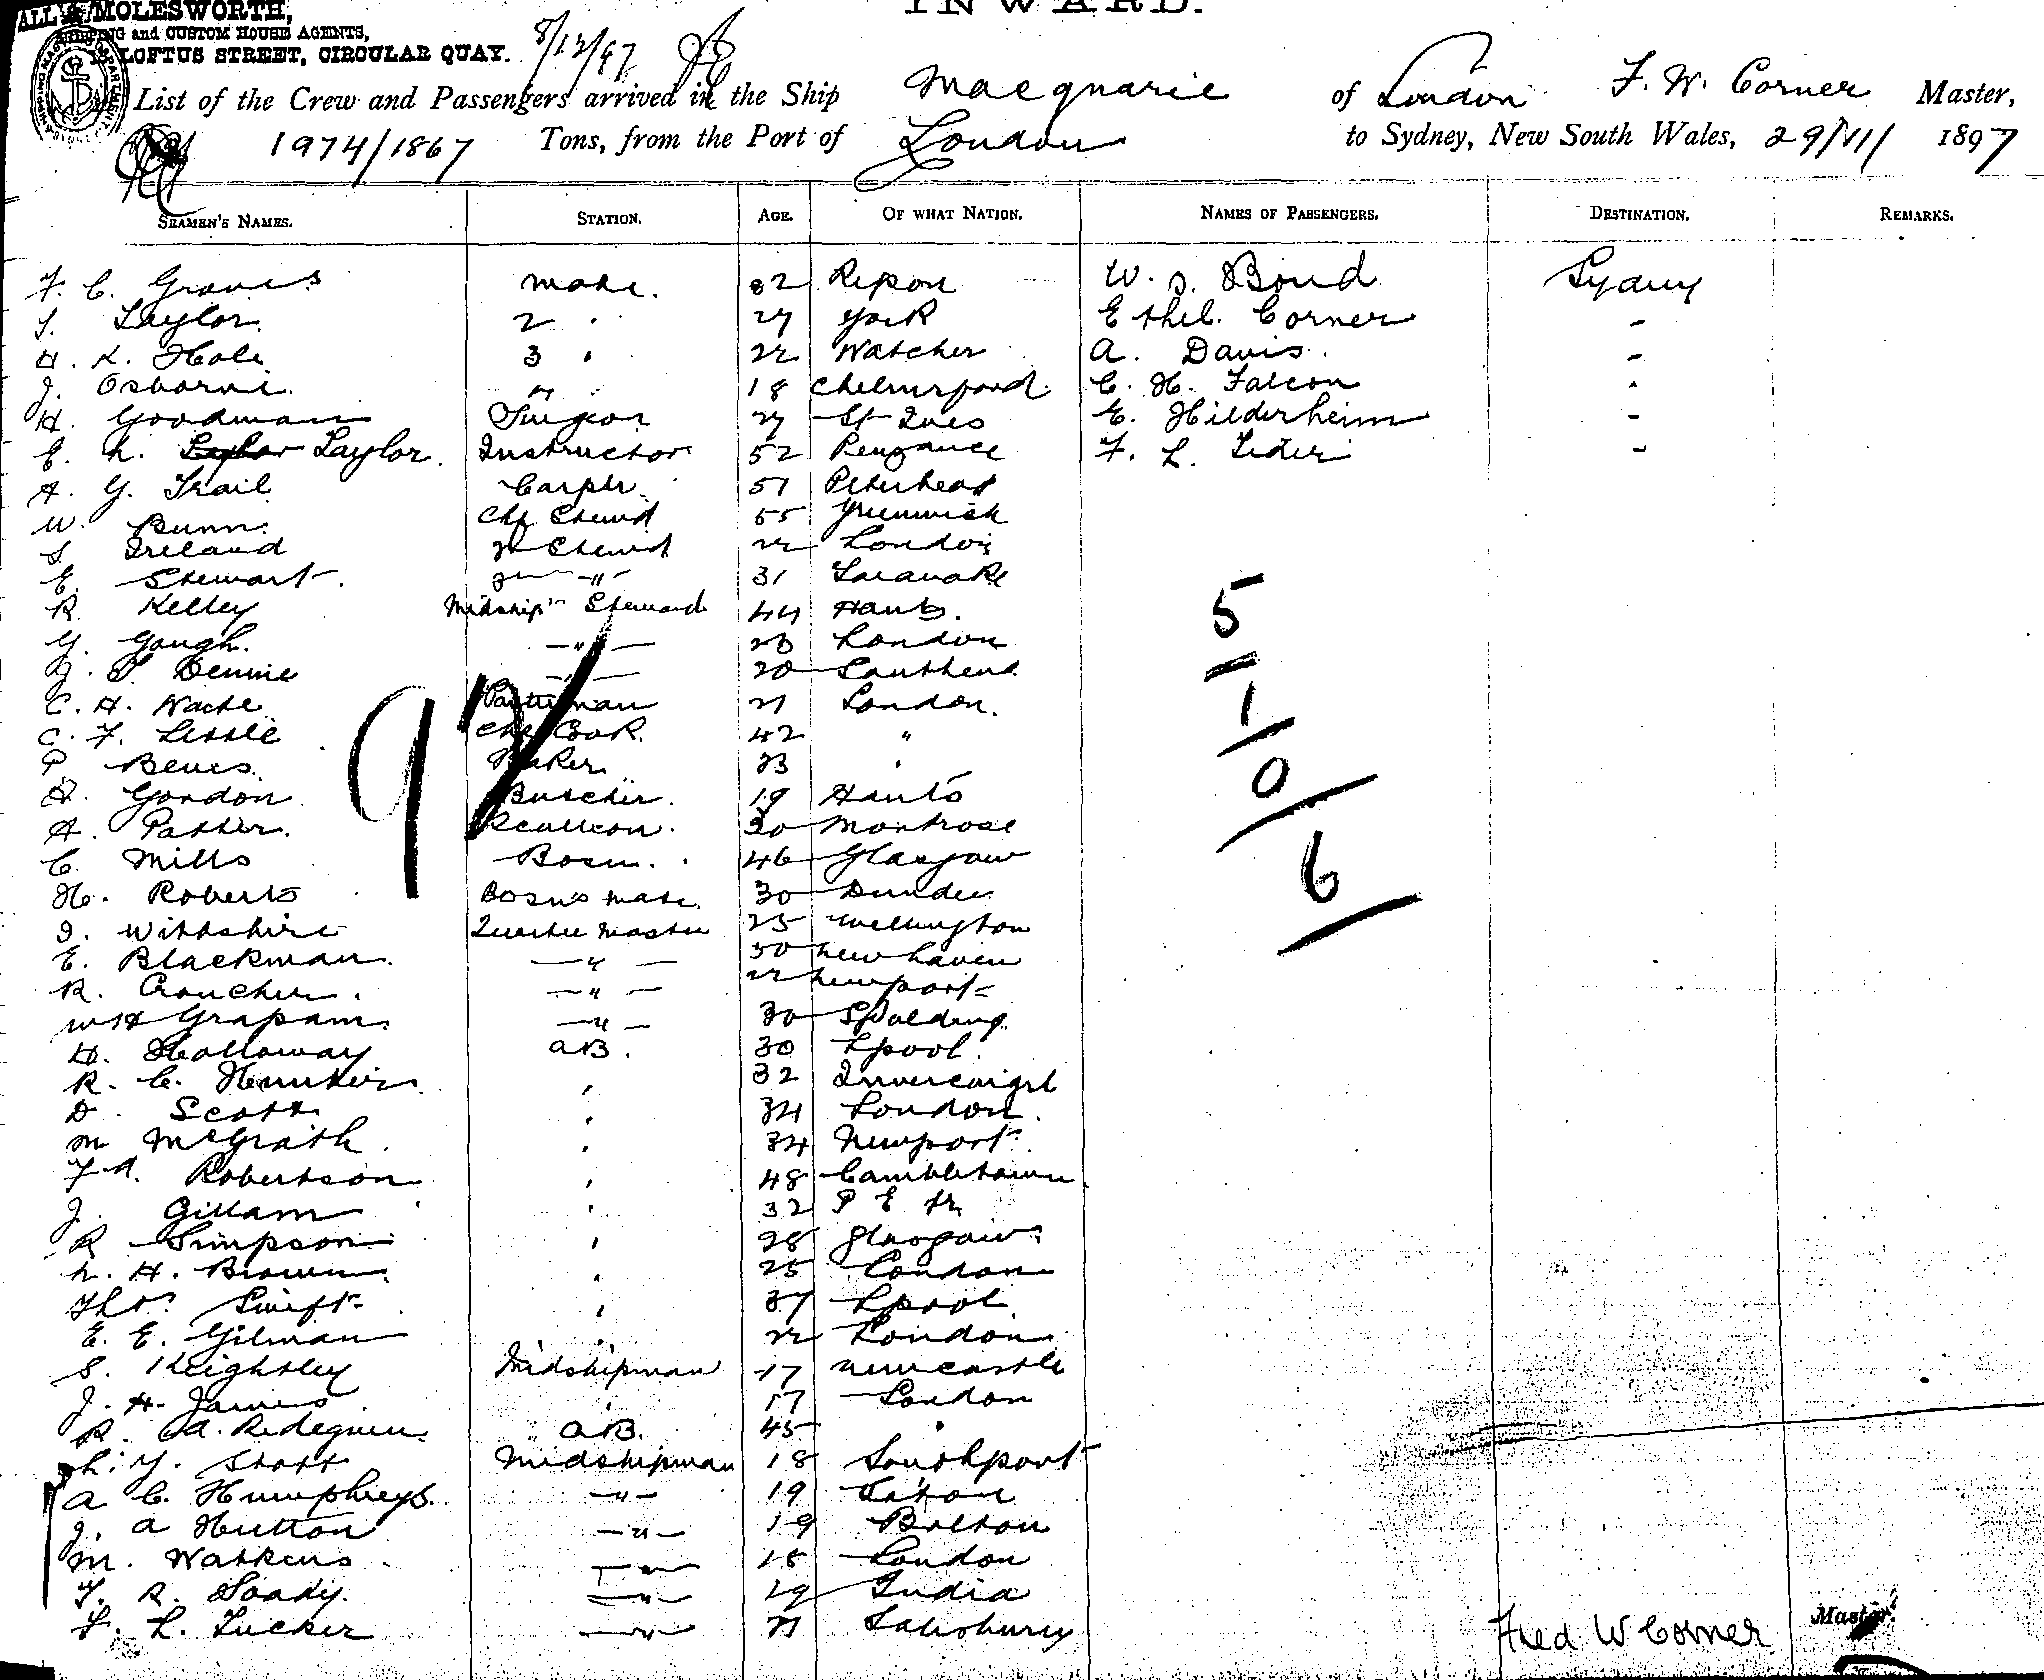 INWARD.
ALL & MOLESWORTH,
SHIPPING and CUSTOM HOUSE AGENTS,
LOFTUS STREET, CIRCULAR QUAY. 8/12/97
List of the Crew and Passengers arrived in the Ship Macquarie of London F. W. Corner Master,
1974/1867 Tons, from the Port of London to Sydney, New South Wales, 29/11/ 1897
SEAMEN'S NAMES. STATION. AGE. OF WHAT NATION. NAMES OF PASSENGERS. DESTINATION. REMARKS.
F. C. Graves Mate. 32 Ripon W. S. Bond Sydney
S. Taylor 2 " 27 York Ethel. Corner "
H. K. Hole 3 " 22 Watchet A. Davis. "
J. Osborne. 4 " 18 Chelmsford. C. H. Falcon "
H. Goodman Surgeon 27 St Ives E. Hilderheim "
E. h. Taylor Taylor. Instructor 52 Penzance F. L. "
A. G. Trail Carptr. 51 Peterhead
W. Bunn. Chf Stewd 55 Greenwich
S Ireland 2d Stewd 22 London
E. Stewart. " 31 Taranaki
R Kelley Midship's Steward 44 Hants.
G. Gough. " 20 London
J. S. Dennie " 20 Southend
C. H. Wache Pantryman 21 London.
C. F. Little Chf Cook. 42 "
P Beves. Baker 23 "
A. Gordon. Butcher. 19 Hants
A. Patter. Scullion. 20 Montrose
C. Mills Bosn. 46 Glasgow
H. Roberts Bosn's Mate 30 Dundee
J. Wittshire Quarter Master 25 Wellington
E. Blackman. " 50 Newhaven
R. Croucher. " 22 Newport
W H Grapam. " 30 Spalding.
H. Holloway AB. 30 Lpool.
R. C. Hunter " 32 Invercargill
D. Scott " 34 London.
M McGrath. " 34 Newport
F. A. Robertson " 48 Cambletown
J. Gillam " 32 P E
R Simpson " 28 Glasgow
h. H. Brown " 25 London
Thos. Swift " 37 Lpool
E. E. Gilman " 22 London
S. Keightley Midshipman 17 Newcastle
J. H. James " 17 London
R. A. AB. 45 "
h. Y. Stott Midshipman 18 Southport
A C. Humphreys. " 19
J. A Hutton " 19 Bolton
M. Watkins " 18 London
F. R. Soady. " 19 India
F. L. Tucker " 21 Salisbury
97
5
1
0
6
Fred W Corner Master.